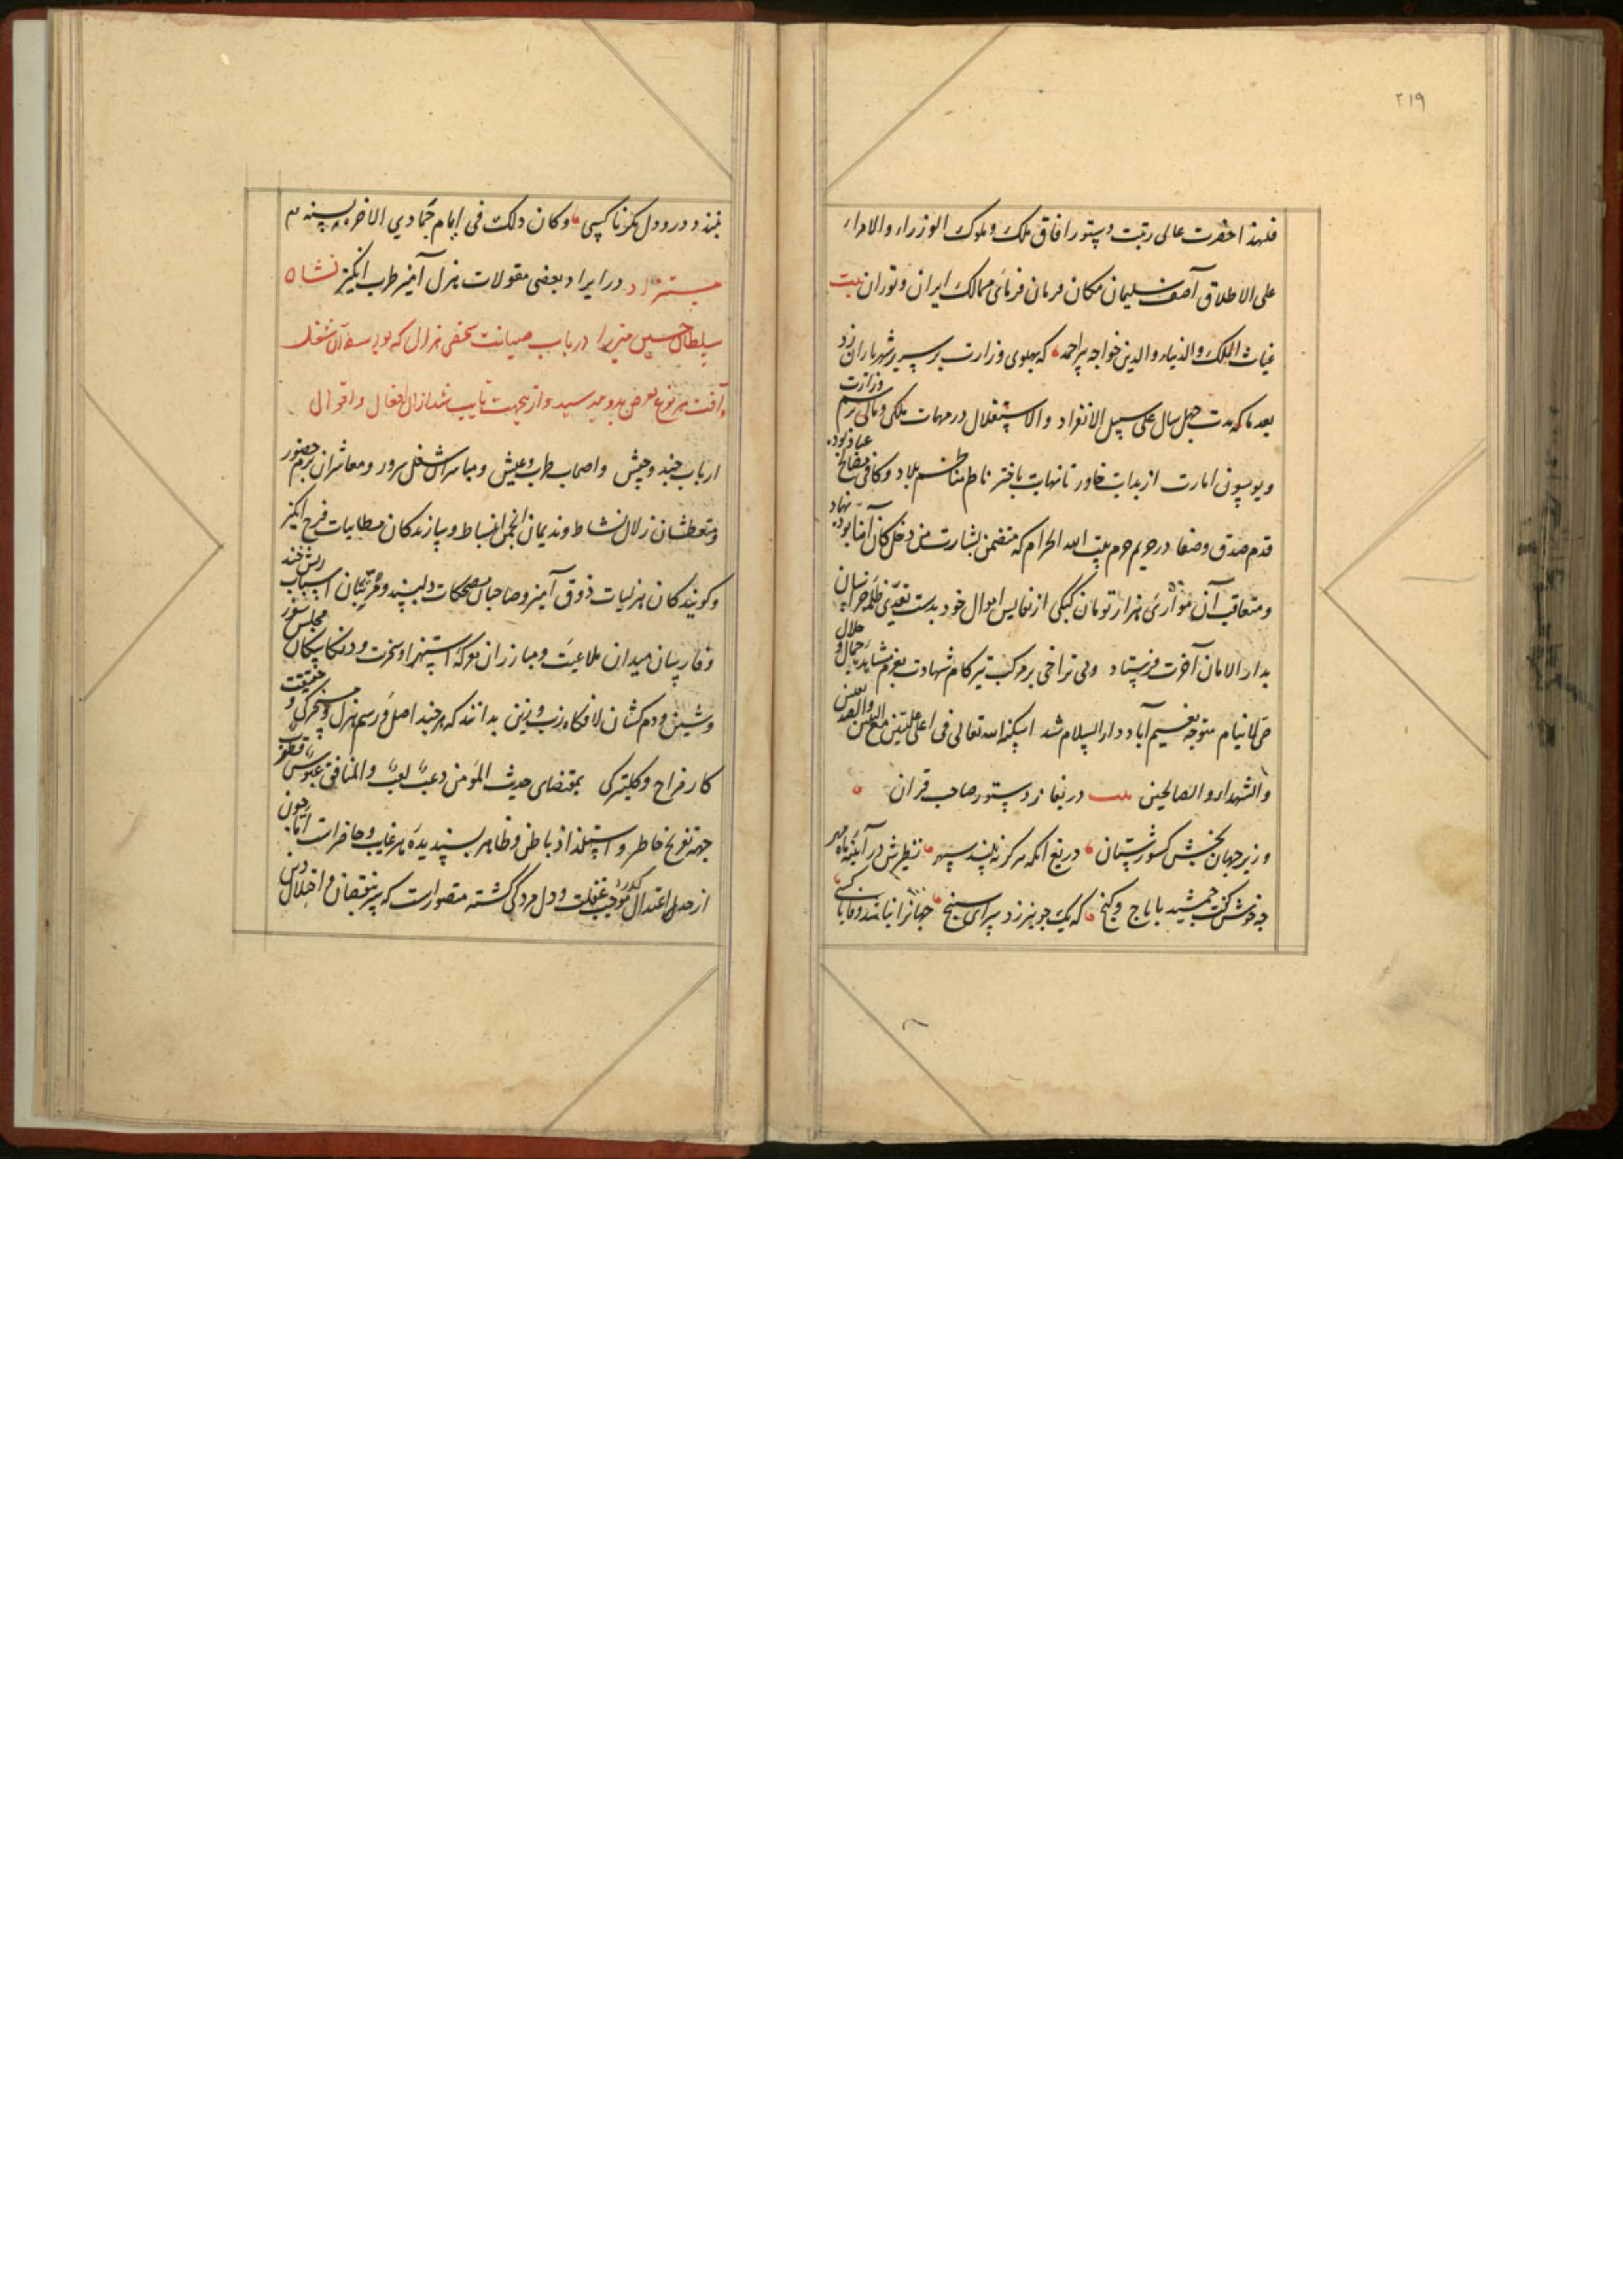 ۲۱۹
فلهذا حضرت عالی رتبت دستور آفاق ملک و ملوک الوزراء والامراء
علی الاطلاق آصف سلیمان مکان فرمان فرمای ممالک ایران و توران بیت
غیاث الملک والدنیا والدین خواجه پیر احمد که پهلوی وزارت بر سریر شهریاران زد
بعد ما که مدت چهل سال علی سبیل الانفراد والاستقلال در مهمات ملکی و مالی برسم وزارت
و یوسون امارت از بدایت خاور تا نهایت باختر ناظم مناظم بلاد و کافی مصالح عباد بوده
قدم صدق و صفا در حریم حرم بیت الله الحرام که متضمن بشارت من دخل کان آمنا بود نهاد
و متعاقب آن موازی هزار تومان کپکی از نفایس اموال خود بدست تعدی ظلمه خراسان
بدار الامان آخرت فرستاد و بی تراخی بر مرکب تیزکام شهادت بعزم مشاهده جمال و جلال
حی لاینام متوجه نعیم آباد دار السلام شد اسکنه الله تعالی فی اعلی علیین مع النبیین والصدیقین
والشهداء والصالحین بیت دریغا ز دستور صاحب قران
وزیر جهان بخش کشورستان دریغ انکه هرگز نبیند سپهر نظیرش در آیینه ماه و مهر
چه خوش گفت جمشید با تاج و گنج که یک جو نیرزد سرای سپنج جهانرا نباشد وفا با کسی
نبندد درو دل مگر ناکسی وکان ذلک فی ایام جمادی الاخره سنه
در ایراد بعضی مقولات هزل آمیز طرب انگیز نشان
سلطان حسین میرزا در باب صیانت شخصی هزال که بواسطه آن شغل
آفت هر نوع تعرض بدو میرسید و ازینجهت تایب شد از آن افعال و اقوال
ارباب جند و جیش و اصحاب طرب و عیش و مباشران شغل سرور و معاشران بزم حضور
و متعطشان زلال نشاط و ندیمان انجمن انبساط و سازندگان مطایبات فرح انگیز
و گویندگان هزلیات ذوق آمیز و صاحبان مضحکات دلپسند و مرتبان اسباب ریش خند
و فارسان میدان ملاعبت و مبارزان معرکه استهزا و سخرت و مجلس سور
و شین و دم کشان لافگاه زیب و زین بدانند که هر چند اصل و رسم هزل و مسخرگی و حقیقت
کار مزاح و کلپتره‌گی بمقتضای حدیث المؤمن دعب لعب والمنافق عبوس قطوب
جهة تفریح خاطر و استلذاذ باطن و ظاهر پسندیده هر غایب و حاضر است اما چون
از حد اعتدال گذرد موجب غفلت و دل مردگی گشته متصور است که بر نقصان و اختلال دین